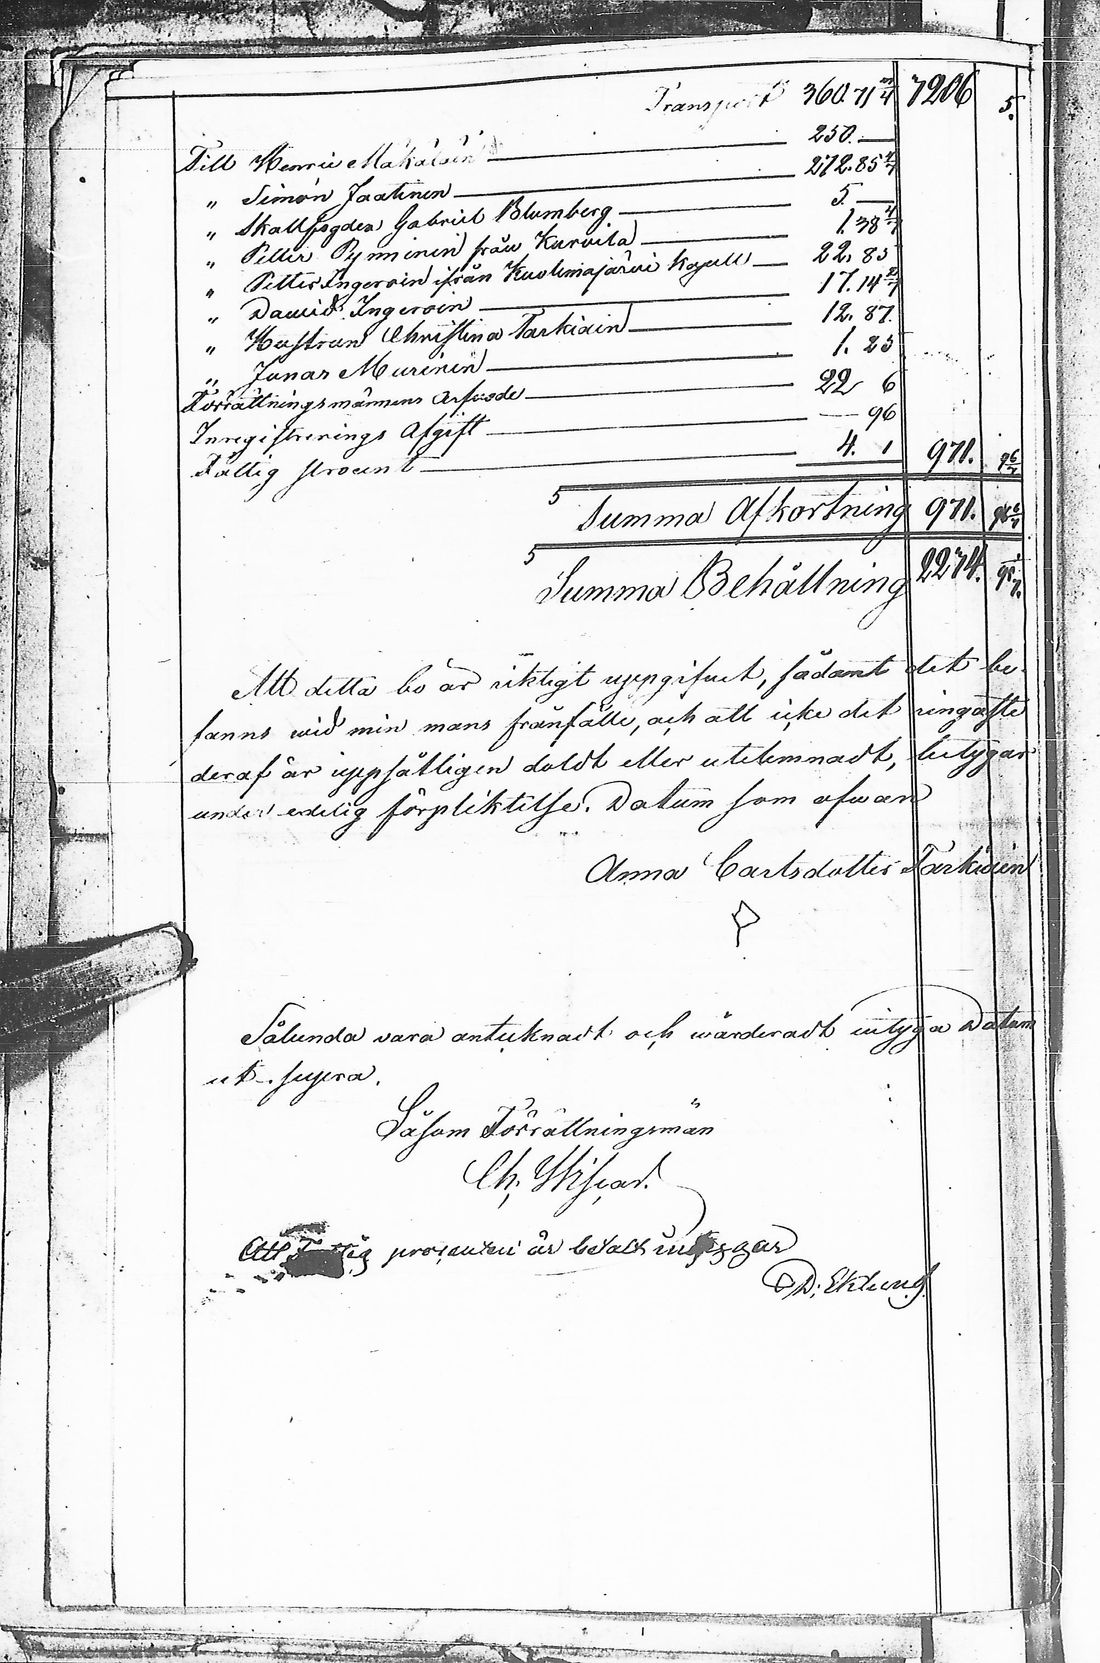 Transport 360. 71 3/7 7206 5.
Till Henric Makalain 250. —
„ Simon Jaatinen 272. 85 4/7
„ Skallfogden Gabriel Blumberg 5. —
„ Petter Pynninen från Kurvila 1. 38 4/7
„ Petter Ingeroin ifrån Kuolemajärvi Kapell 22. 85
„ Dawid Ingeroin 17. 14 2/7
„ Hustrun Christina Tarkiain 12. 87.
„ Jonas Murinin 1. 25
Förrättningsmännens Arfvode 22 6
Inregistrerings Afgift — 96
Fattig procent 4. 1 971. 96 6/7
S Summa Afkortning 971. 96 6/7
S Summa Behållning 2274. 95 1/7.
Att detta bo är riktigt uppgifvet, sådant det be-
fanns wid min mans frånfälle, och att icke det ringaste
deraf är uppsåtligen doldt eller utelemnadt, betygar
under edelig förpliktelse. Datum som ofwan
Anna Carlsdotter Tarkiain
Sålunda vara antecknadt och wärderadt intyga Datum
ut supra.
Såsom Förrättningsmän
Ch.
Att Fattig procenten är betalt intyggar
D. Eklund.